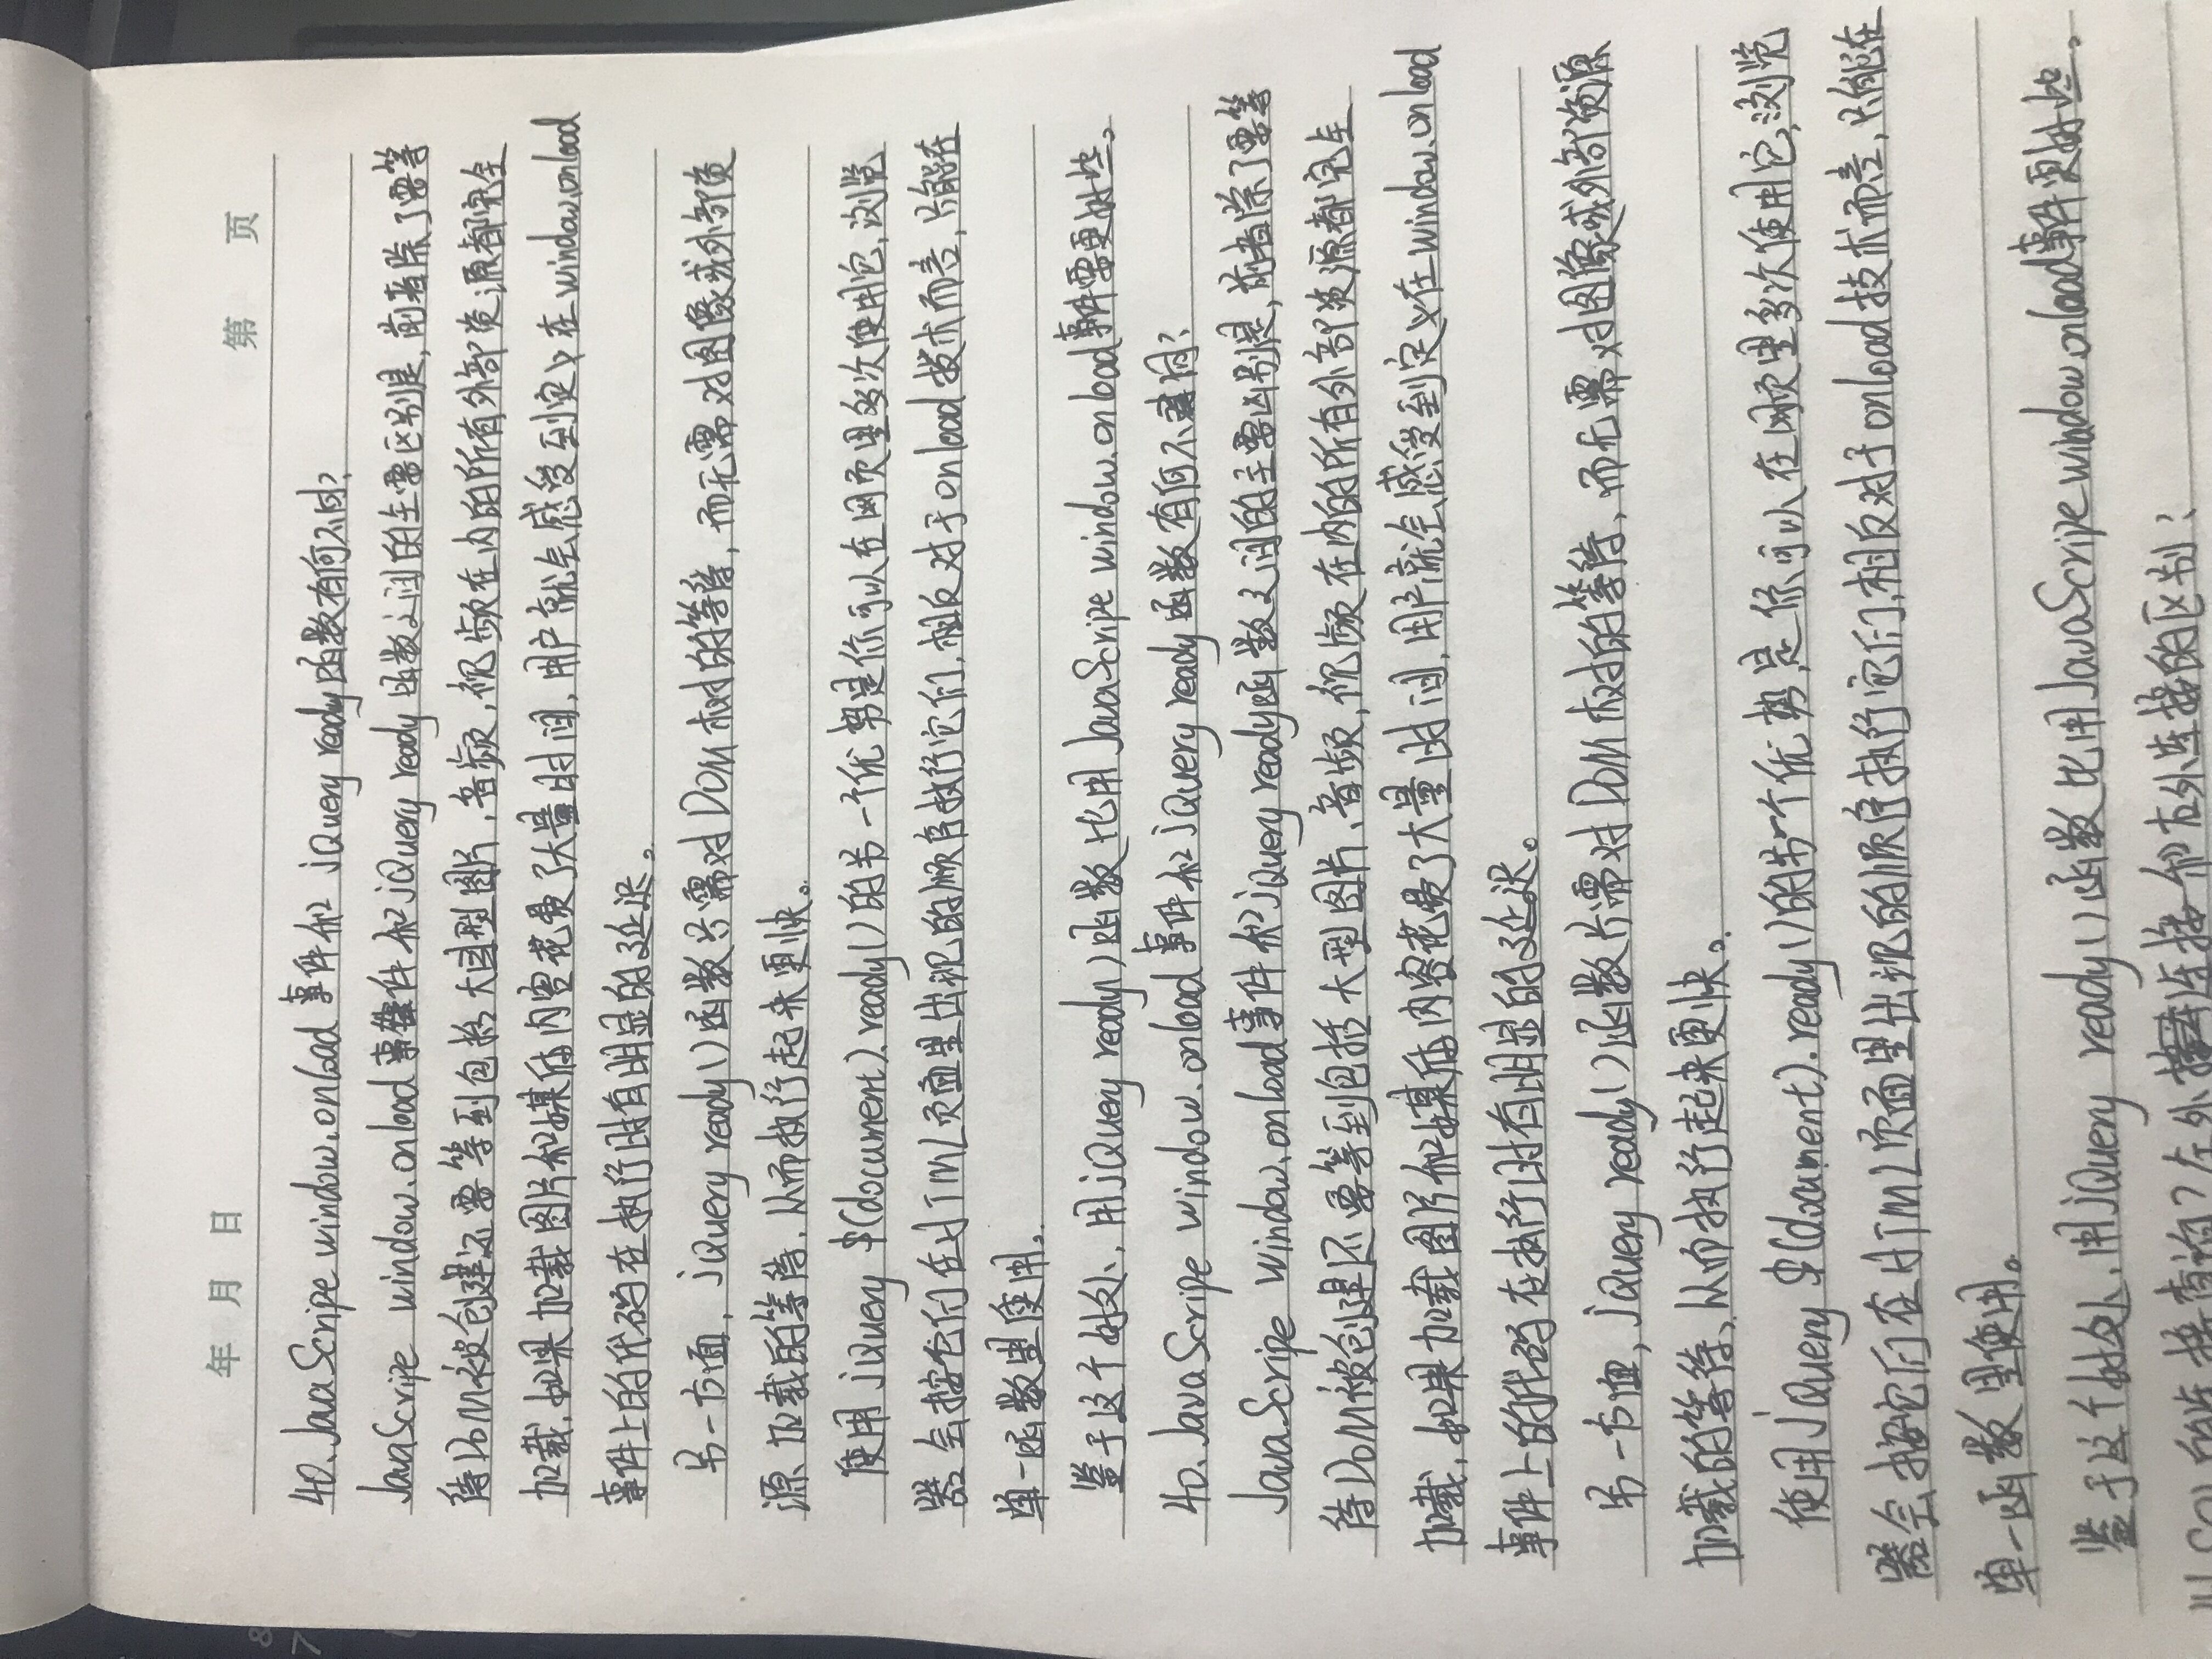 年 月 日 第 页
40、JavaScripe window.onload 事件和 jQuery ready 函数有何不同？
JavaScripe window.onload 事件和 jQuery ready 函数之间的主要区别是，前者除了要等
待DOM被创建还要等到包括大型图片，音频，视频在内的所有外部资源都完全
加载，如果加载图片和媒体内容花费了大量时间，用户就会感受到定义在window.onload
事件上的代码在执行时有明显的延迟。
另一方面，jQuery ready()函数只需对DOM树的等待，而无需对图像或外部资
源加载的等待，从而执行起来更快。
使用 jQuery $(document).ready()的另一个优势是你可以在网页里多次使用它，浏览
器会按它们在HTML页面里出现的顺序执行它们，相反对于onload技术而言，只能在
单一函数里使用。
鉴于这个好处，用jQuery ready()函数比用JavaScripe window.onload事件需更好些。
40、JavaScripe window.onload 事件和 jQuery ready 函数有何不同？
JavaScripe window.onload事件和jQuery ready函数之间的主要区别是，前者除了要等
待DOM被创建还要等到包括大型图片、音频，视频在内的所有外部资源都完全
加载，如果加载图片和媒体内容花费了大量时间，用户就会感受到定义在window.onload
事件上的代码在执行时有明显的延迟。
另一方面，jQuery ready()函数只需对DOM树的等待，而无需对图像或外部资源
加载的等待、从而执行起来更快。
使用jQuery $(document).ready()的另一个优势，是你可以在网页里多次使用它，浏览
器会按它们在HTML页面里出现的顺序执行它们，相反对于onload技术而言，只能在
单一函数里使用。
鉴于这个好处，用jQuery ready()函数比用JavaScripe window.onload事件更好些。
SQL的连接查询？左外连接和右外连接的区别？